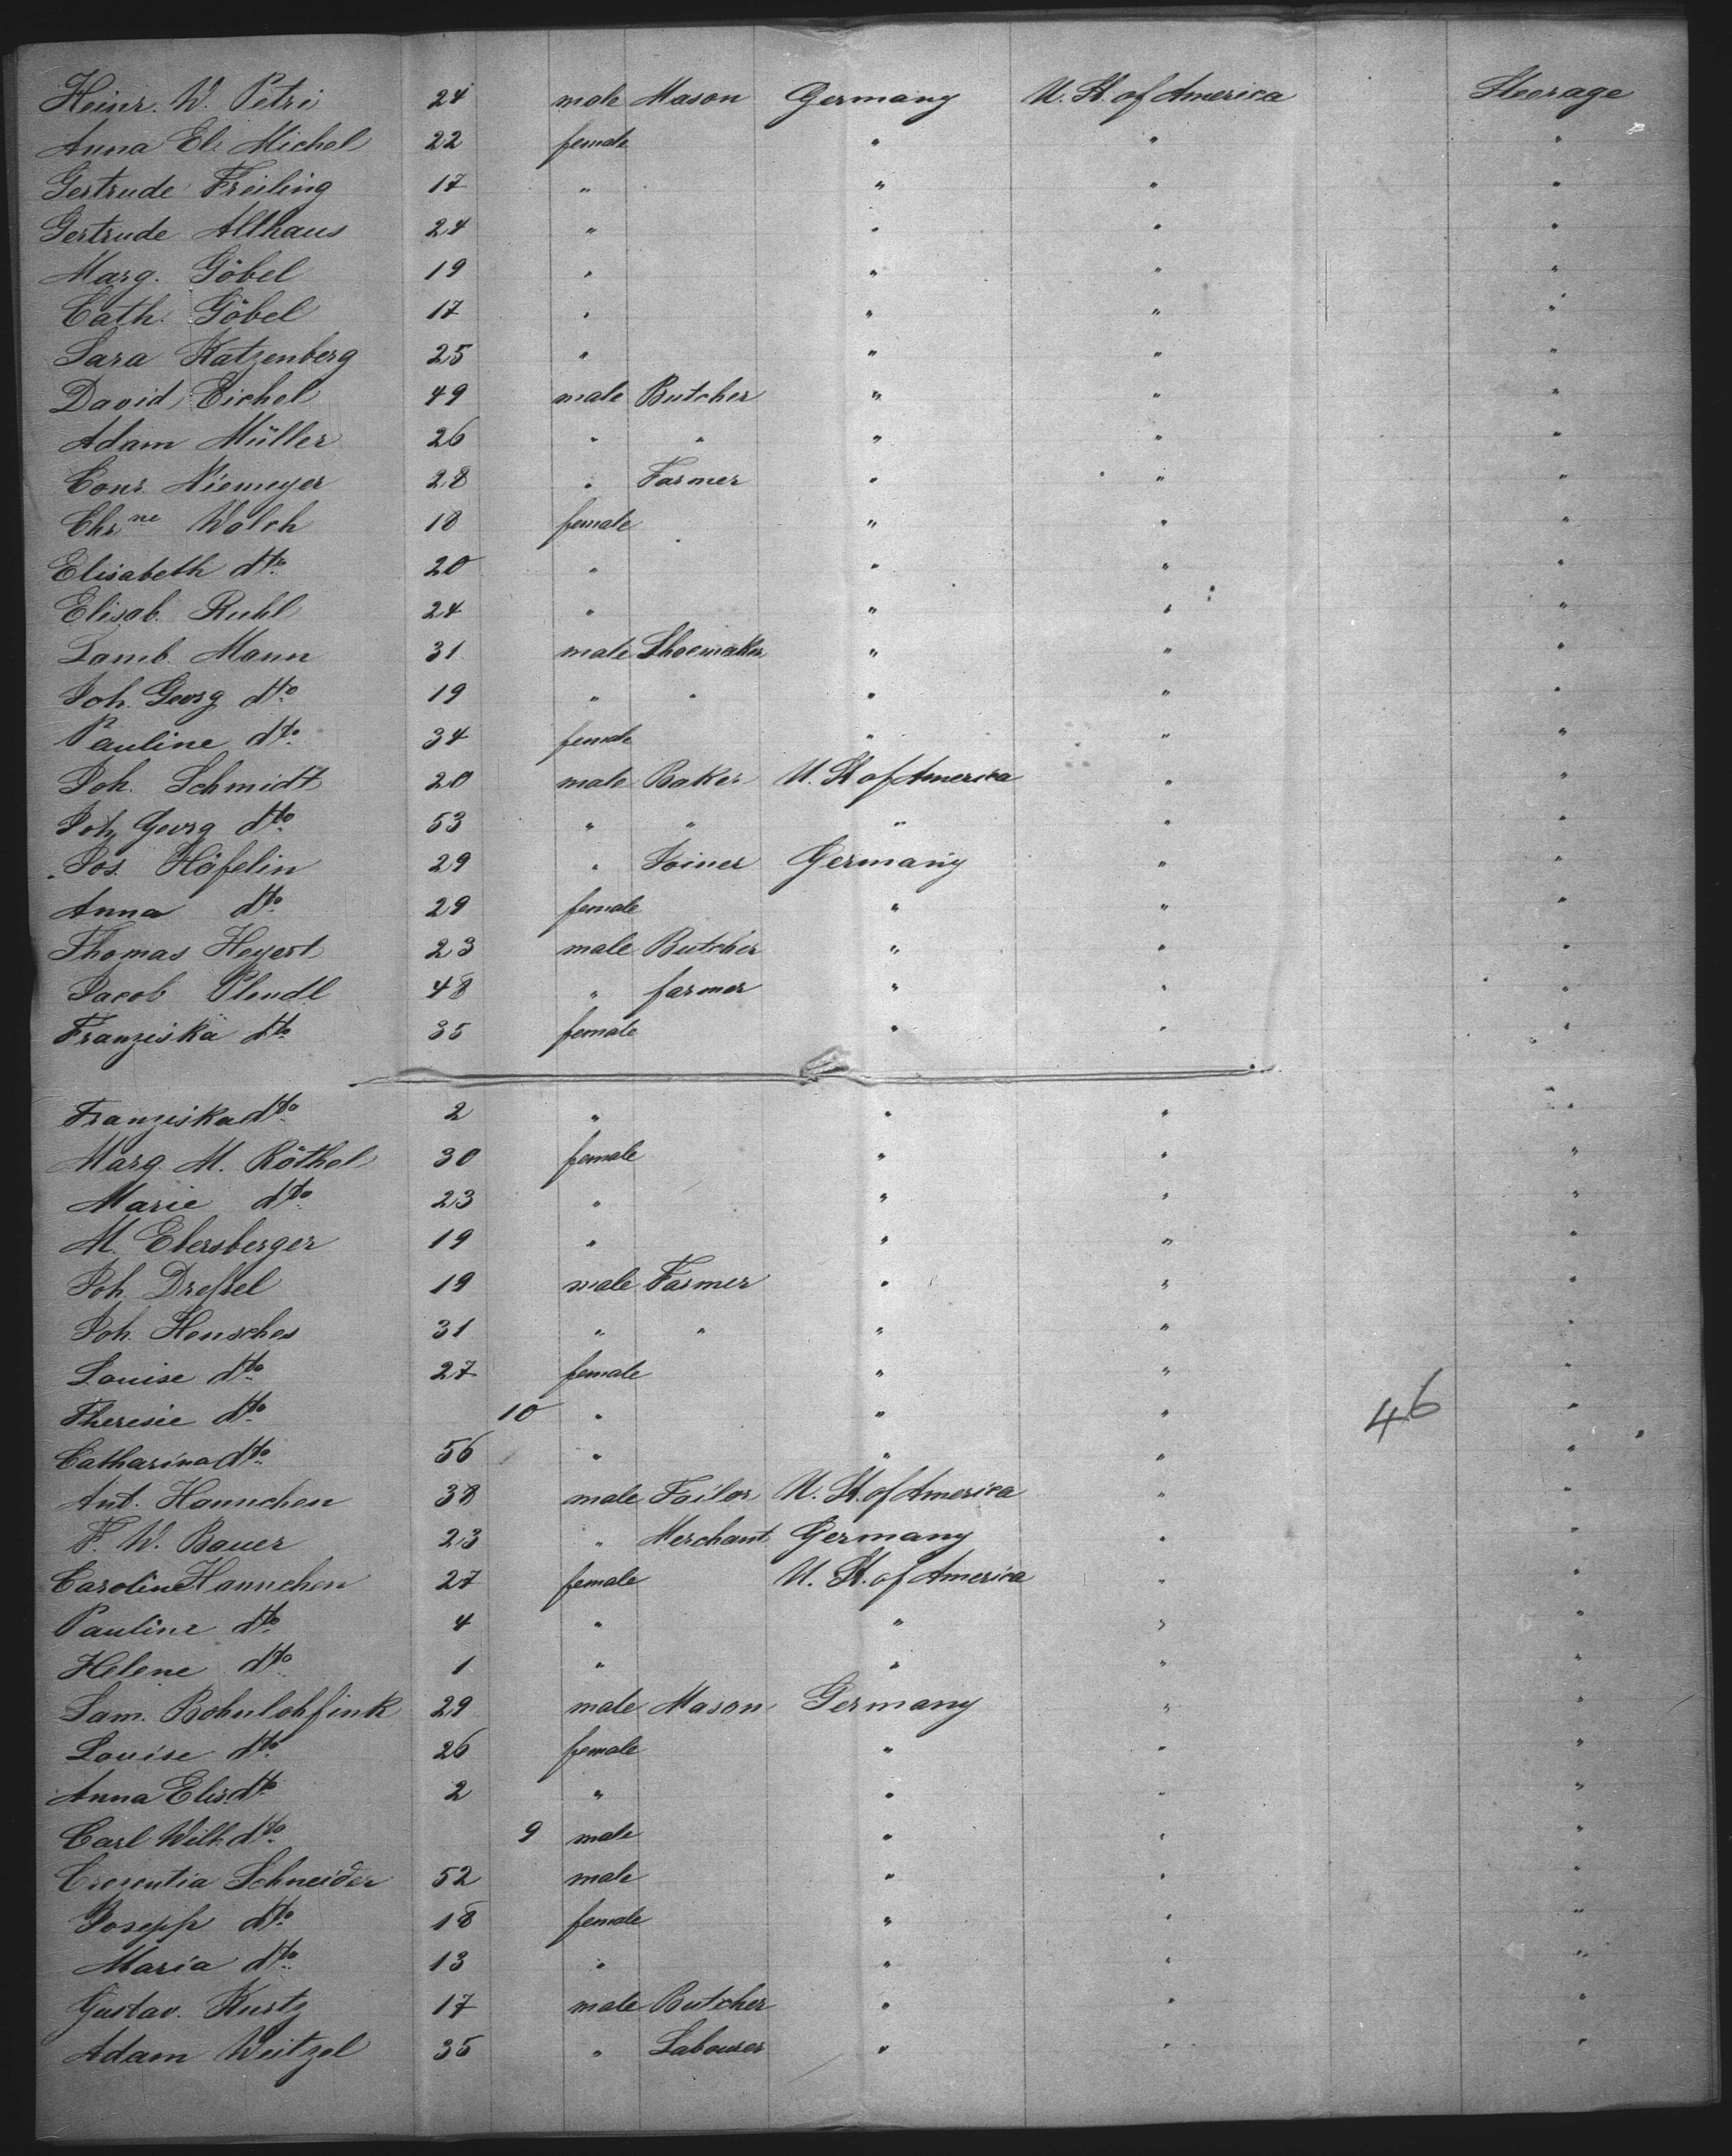 Heinr. W. Petri 24 male Mason Germany U. St. of America Steerage
Anna El. Michel 22 female " " "
Gertrude Freiling 17 " " " "
Gertrude Althaus 24 " " " "
Marg. Göbel 19 " " " "
Cath. Göbel 17 " " " "
Sara Katzenberg 25 " " " "
David Eichel 49 male Butcher " " "
Adam Müller 26 " " " " "
Conr. Niemeyer 28 " Farmer " " "
Chrne Wolch 18 female " " "
Elisabeth dto 20 " " " "
Elisab. Ruhl 24 " " " "
Lamb. Mann 31 male Shoemaker " " "
Joh. Georg dto 19 " " " " "
Pauline dto 34 female " " "
Joh. Schmidt 20 male Baker U. St of America " "
Joh. Georg dto 53 " " " " "
Jos. Häfelin 29 " Joiner Germany " "
Anna dto 29 female " " "
Thomas Heyert 23 male Butcher " " "
Jacob Plendl 48 " farmer " " "
Franziska dto 35 female " " "
Franziska dto 2 " " " "
Marg. M. Röthel 30 female " " "
Marie dto 23 " " " "
M. Ebersberger 19 " " " "
Joh. Dreßel 19 male Farmer " " "
Joh. Hensches 31 " " " " "
Louise dto 27 female " " "
Theresie dto 10 " " " 46 "
Catharina dto 56 " " " "
Ant. Hannchen 38 male Tailor U. St. of America " "
F. W. Bauer 23 " Merchant Germany " "
Caroline Hannchen 27 female U. St. of America " "
Pauline dto 4 " " " "
Helene dto 1 " " " "
Sam. Bohnlohfink 29 male Mason Germany " "
Louise dto 26 female " " "
Anna Elis. dto 2 " " " "
Carl Wilh. dto 9 male " " "
Cresentia Schneider 52 male " " "
Joseph dto 18 female " " "
Maria dto 13 " " " "
Gustav. Kurtz 17 male Butcher " " "
Adam Weitzel 35 " Labourer " " "